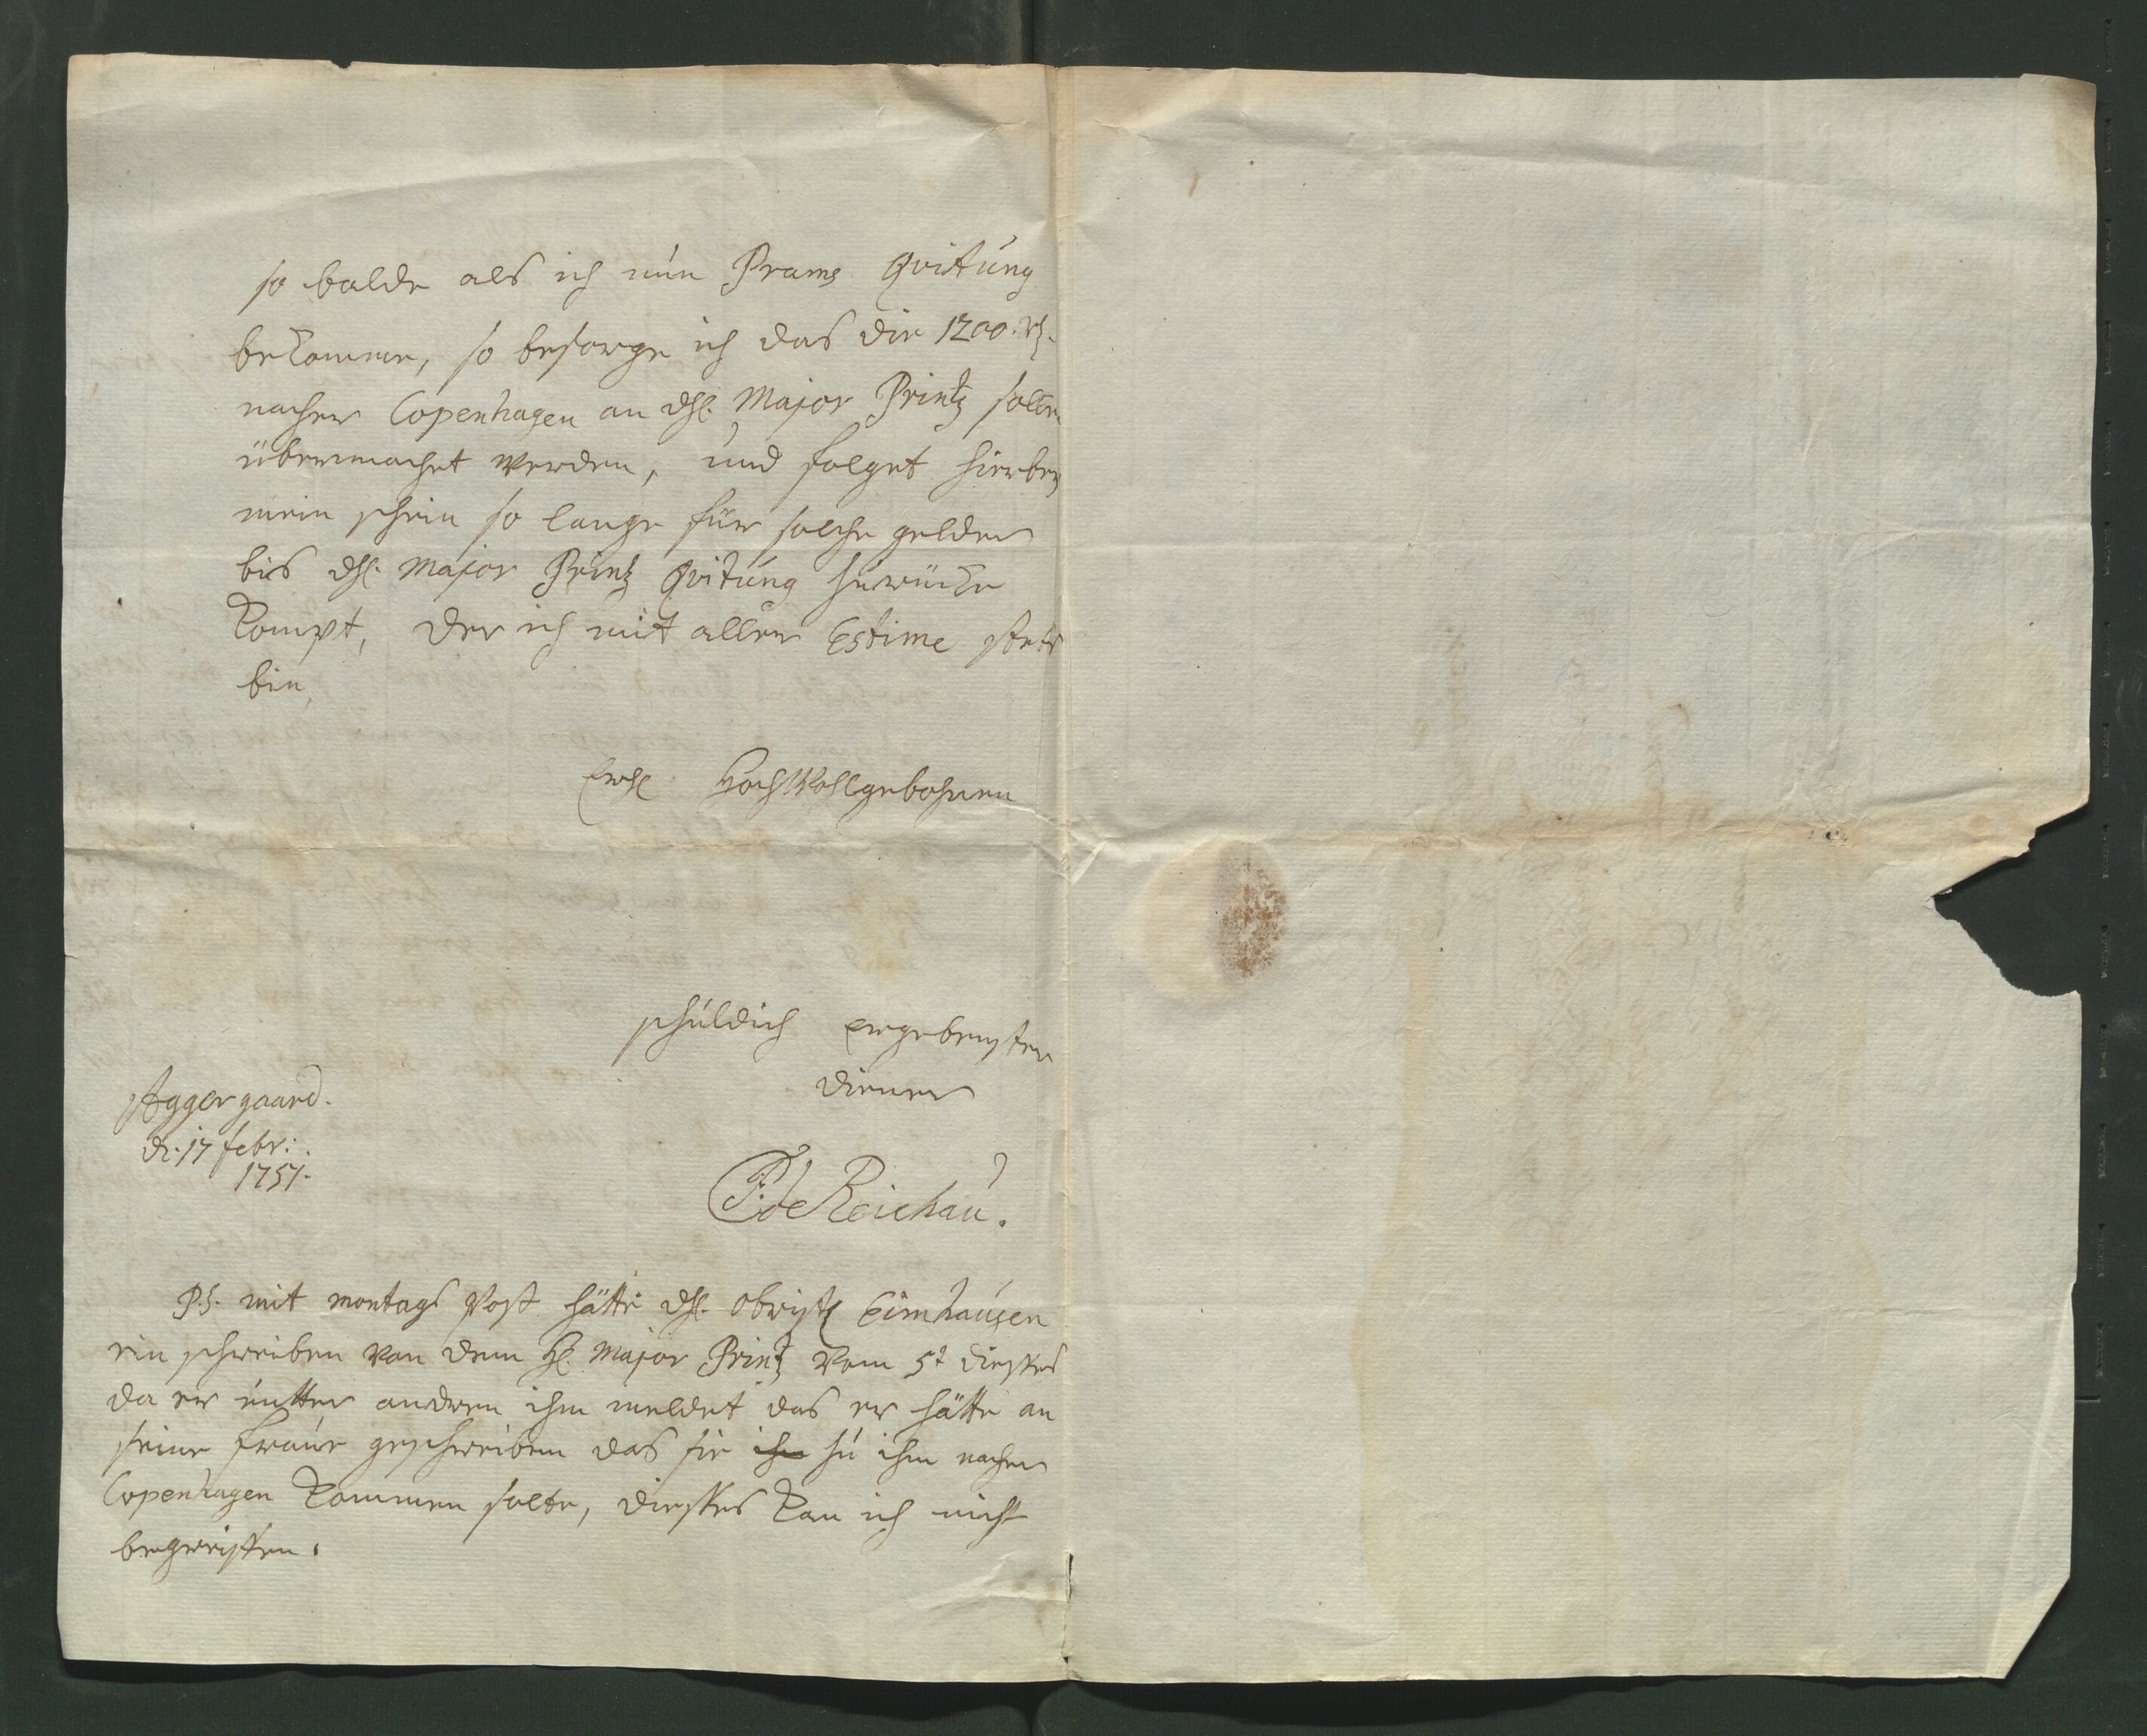 so balde als ich nun Prams Qvitung
bekomme, so besorge ich das die 1200 rh.
nacher Copenhagen an dH. Major Printz sollen
übermachet werden, und folget hierbey
mein schein so lange für solche gelder
bis dH. Major Printz Qvitung zurücke
kompt, der ich mit aller Estime stets
bin,
HochWollgebohren
schuldich ergebenster
diener
Aggergaard.
d. 17 febr:
1757.
P. de Reichau.
P.S. mit montags Post hätte dH. Obrist Eimhausen
ein schreiben von dem H. Major Printz vom 5t dießes
da er unter andren ihm meldet das er hätte an
seine fraue geschreiben das sie ihm zu ihm nacher
Copenhagen kommen solte, dießes kan ich nicht
begreiffen.